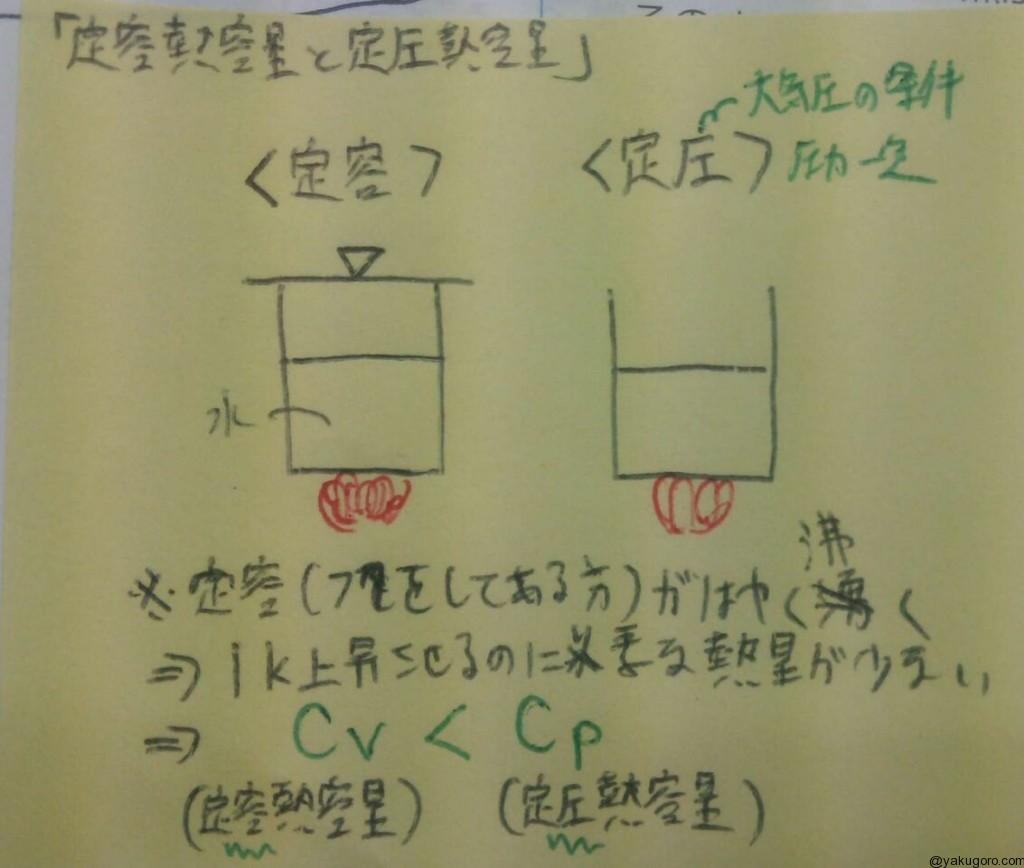 「定容熱容量と定圧熱容量」
大気圧の条件
<定容>
<定圧>
圧力一定
水
沸
※定容(フタをしてある方)がはやく沸く
⇒ 1k上昇させるのに必要な熱量が少ない
⇒ Cv < Cp
(定容熱容量) (定圧熱容量)
@yakugoro.com